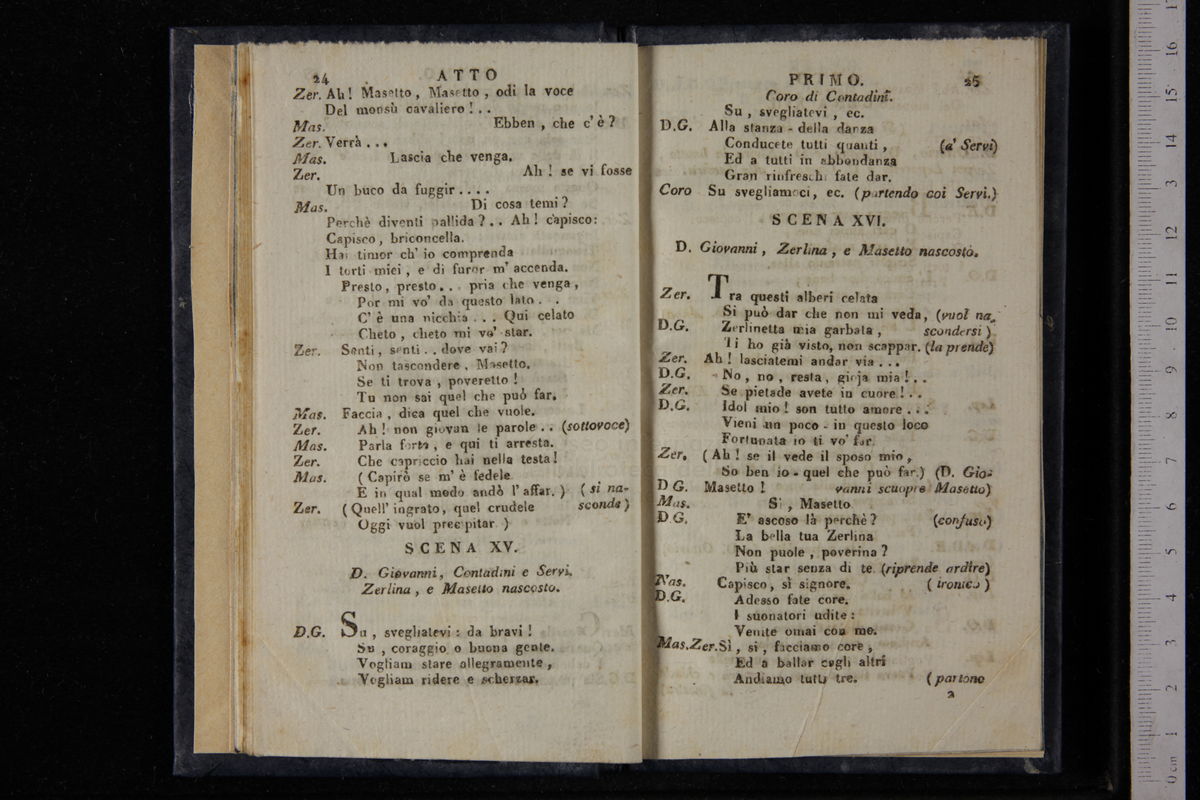 24 ATTO
Zer. Ah! Masetto, Masetto, odi la voce
Del monsù cavaliero!..
Mas. Ebben, che c'è?
Zer. Verrà...
Mas. Lascia che venga.
Zer. Ah! se vi fosse
Un buco da fuggir....
Mas. Di cosa temi?
Perchè diventi pallida?.. Ah! capisco:
Capisco, briconcella.
Hai timor ch' io comprenda
I torti miei, e di furor m' accenda.
Presto, presto... pria che venga,
Por mi vo' da questo lato..
C' è una nicchia... Qui celato
Cheto, cheto mi vo' star.
Zer. Senti, senti.. dove vai?
Non tascondere, Masetto.
Se ti trova, poveretto!
Tu non sai quel che può far.
Mas. Faccia, dica quel che vuole.
Zer. Ah! non giovan le parole.. (sottovoce)
Mas. Parla forte, e qui ti arresta.
Zer. Che capriccio hai nella testa!
Mas. (Capirò se m' è fedele
E in qual modo andò l' affar.) (si na-
Zer. (Quell' ingrato, quel crudele sconde)
Oggi vuol precipitar.)
SCENA XV.
D. Giovanni, Contadini e Servi,
Zerlina, e Masetto nascosto.
D.G. Su, svegliatevi: da bravi!
Su, coraggio o buona gente.
Vogliam stare allegramente,
Vogliam ridere e scherzar.
PRIMO. 25
Coro di Contadini.
Su, svegliatevi, ec.
D.G. Alla stanza - della danza
Conducete tutti quanti, (a' Servi)
Ed a tutti in abbondanza
Gran rinfreschi fate dar.
Coro Su svegliamoci, ec. (partendo coi Servi.)
SCENA XVI.
D. Giovanni, Zerlina, e Masetto nascosto.
Zer. Tra questi alberi celata
Si può dar che non mi veda, (vuol na-
D.G. Zerlinetta mia garbata, scondersi)
Ti ho già visto, non scappar. (la prende)
Zer. Ah! lasciatemi andar via...
D.G. No, no, resta, gioja mia!..
Zer. Se pietade avete in cuore!..
D.G. Idol mio! son tutto amore...
Vieni un poco - in questo loco
Fortunata io ti vo' far.
Zer. (Ah! se il vede il sposo mio,
So ben io - quel che può far.) (D. Gio-
D G. Masetto! vanni scuopre Masetto)
Mas. Sì, Masetto.
D.G. E' ascoso là perchè? (confuso)
La bella tua Zerlina
Non puole, poverina?
Più star senza di te. (riprende ardire)
Mas. Capisco, sì signore. (ironico)
D.G. Adesso fate core.
I suonatori udite:
Venite omai con me.
Mas. Zer. Sì, sì, facciamo core,
Ed a ballar cogli altri
Andiamo tutti tre. (partono
2
0 cm 1 2 3 4 5 6 7 8 9 10 11 12 13 14 15 16 17